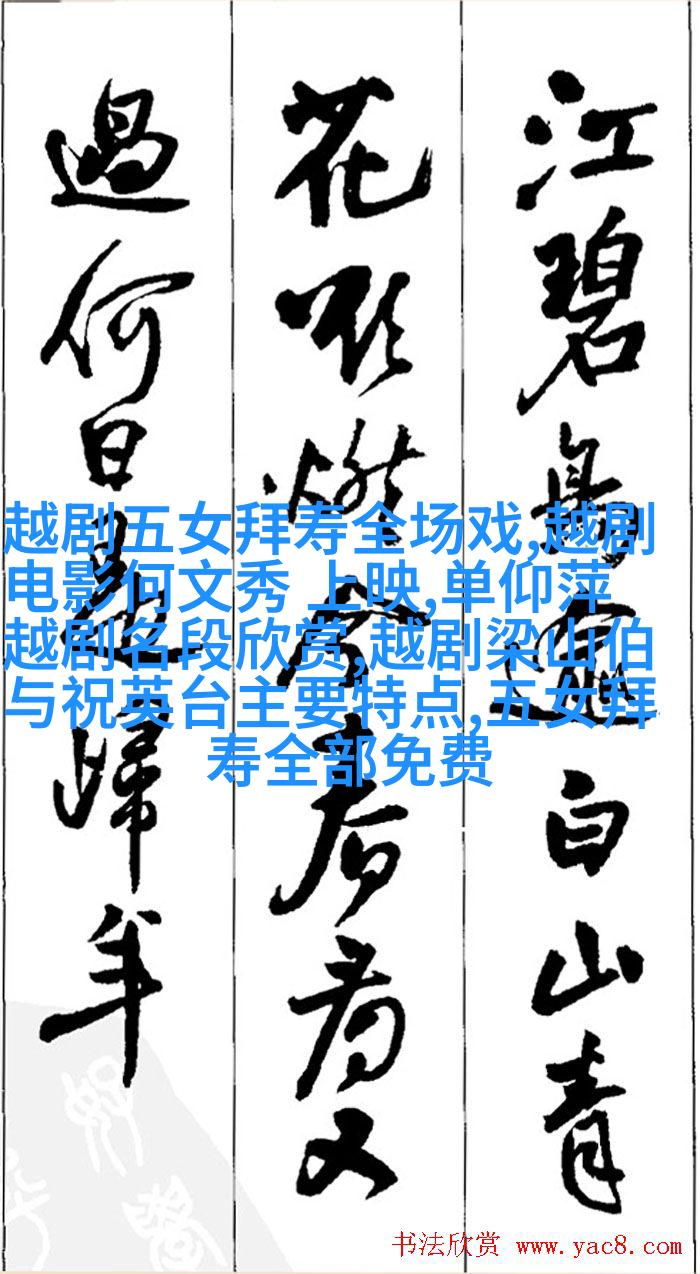 江碧鳥逾白山青
花欲燃今春看又
過何日是歸年
越剧五女拜寿全场戏,越剧
电影何文秀 上映,单仰萍
越剧名段欣赏,越剧梁山伯
与祝英台主要特点,五女拜
寿全部免费
书法欣赏 www.yac8.com